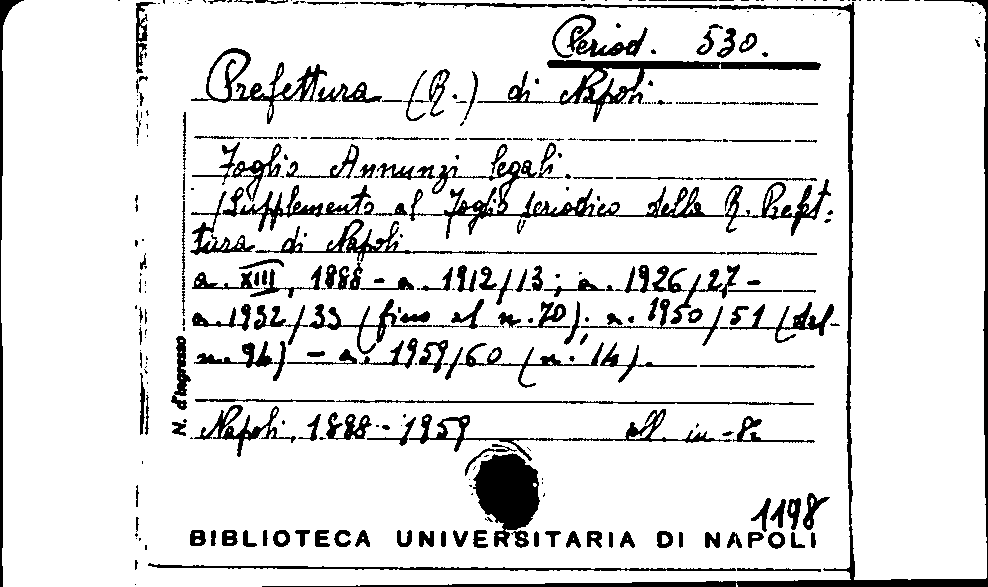 Period. 530.
Prefettura (R.) di Napoli.
Foglio Annunzi legali.
(Supplemento al Foglio periodico della R. Prefet:
tura di Napoli.
a. XIII, 1888 - a. 1912/13; a. 1926/27 -
a. 1932/33 (fino al n. 70); a. 1950/51 (dal
n. 94) - a. 1959/60 (n. 14).
N. d'ingresso
Napoli, 1888 - 1959 in-8°
1198
BIBLIOTECA UNIVERSITARIA DI NAPOLI